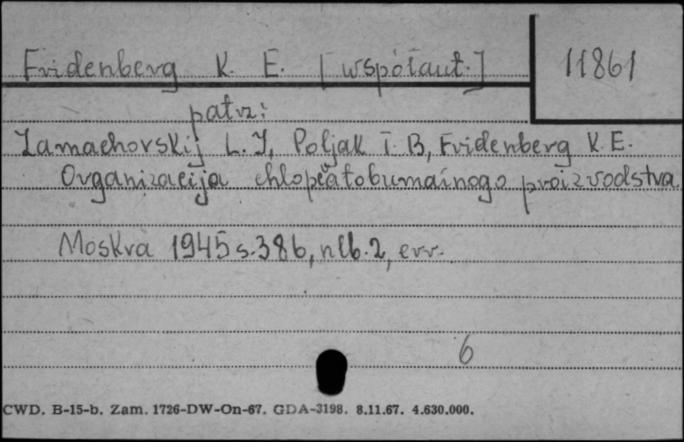 Fridenberg K. E. [współaut.] 11861
patrz:
Zamachovskij L. J, Poljak I. B, Fridenberg K. E.
Organizacija chlopčatobumažnogo proizvodstva.
Moskva 1945 s. 386, nlb. 2, err.
6
CWD. B-15-b. Zam. 1726-DW-On-67. GDA-3198. 8.11.67. 4.630.000.